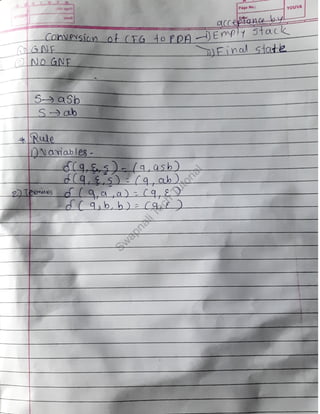 Page No.:
YOUVA
acceptance by
Conversion of CFG to PDA → i) Empty Stack
ii) Final state
① GNF
② NO GNF
S → aSb
S → ab
* Rule
1) Variables -
δ(q, ε, S) = (q, aSb)
δ(q, ε, S) = (q, ab)
2) δ(q, a, a) = (q, ε)
δ(q, b, b) = (q, ε)
Swapnali